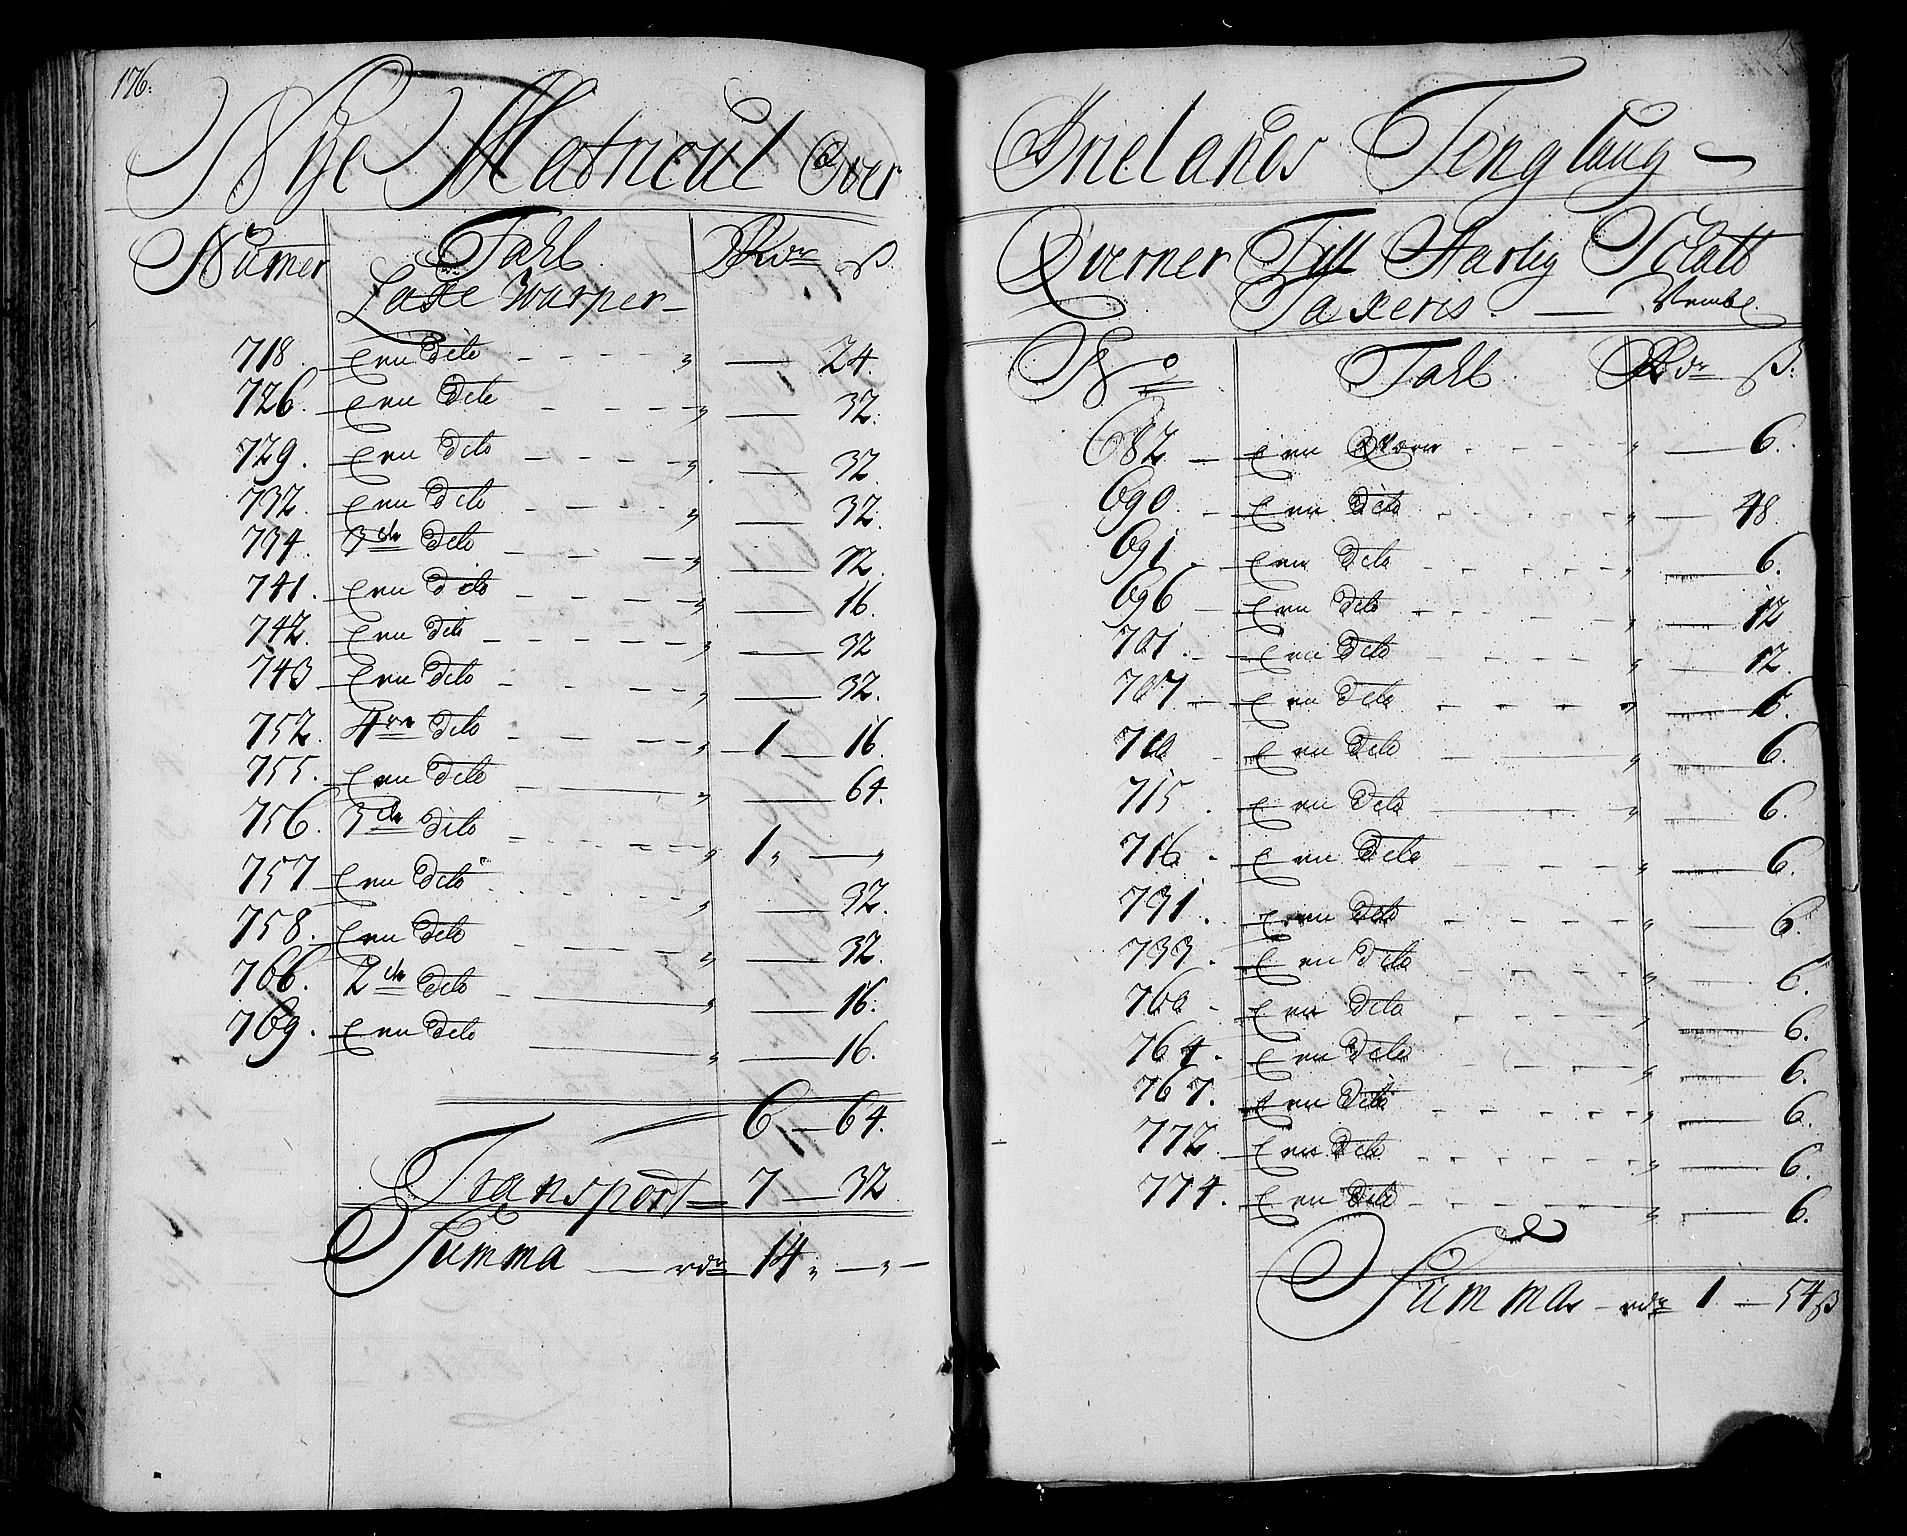 176.
Nye Matricul Over
Numer Tahl Rdr ß
Laxe Warper
718. En dito " 24.
726. En dito " 32.
729. En dito " 32.
732. En dito " 32.
734. 3de dito " 12.
741. En dito " 16.
742. En dito " 32
743 En dito " 32.
752. 4re dito " 1 16
755. En dito " 64.
756. 3de dito " 1 "
757 En dito " 32.
758. En dito " 32.
766. 2de dito " 16.
769. En dito " 16.
6 64.
Transport 7 32
Summa rdr 14 " "
Nielands Tinglaug
Qverner Till Aarlig Schatt
Taxeris.
No Tahl Rdr ß.
682 En Qvern " 6.
690. En dito " 48.
691. En dito " 6.
696 En dito " 12
701. En dito " 12.
707 En dito " 6.
En dito " 6.
715. En dito " 6.
716. En dito " 6.
731. En dito " 6.
733. En dito " 6.
760 En dito " 6.
764. En dito " 6.
767. En dito " 6.
772 En dito " 6.
774. En dito " 6.
Summa rdr 1 54 ß